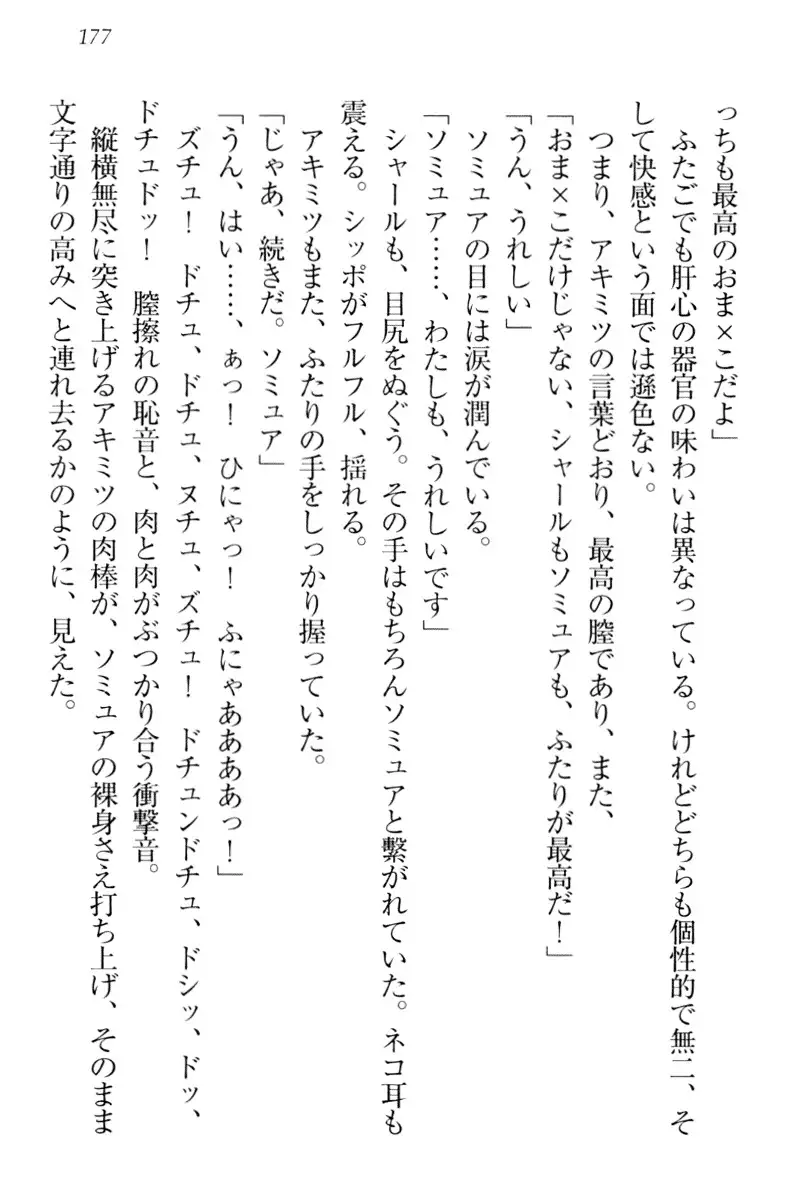 177
っちも最高のおま×こだよ」
ふたごでも肝心の器官の味わいは異なっている。けれどどちらも個性的で無二、そ
して快感という面では遜色ない。
つまり、アキミツの言葉どおり、最高の膣であり、また、
「おま×こだけじゃない、シャールもソミュアも、ふたりが最高だ！」
「うん、うれしい」
ソミュアの目には涙が潤んでいる。
「ソミュア……、わたしも、うれしいです」
シャールも、目尻をぬぐう。その手はもちろんソミュアと繋がれていた。ネコ耳も
震える。シッポがフルフル、揺れる。
アキミツもまた、ふたりの手をしっかり握っていた。
「じゃあ、続きだ。ソミュア」
「うん、はい……、ぁっ！　ひにゃっ！　ふにゃああああっ！」
ズチュ！　ドチュ、ドチュ、ヌチュ、ズチュ！　ドチュンドチュ、ドシッ、ドッ、
ドチュドッ！　膣擦れの恥音と、肉と肉がぶつかり合う衝撃音。
縦横無尽に突き上げるアキミツの肉棒が、ソミュアの裸身さえ打ち上げ、そのまま
文字通りの高みへと連れ去るかのように、見えた。